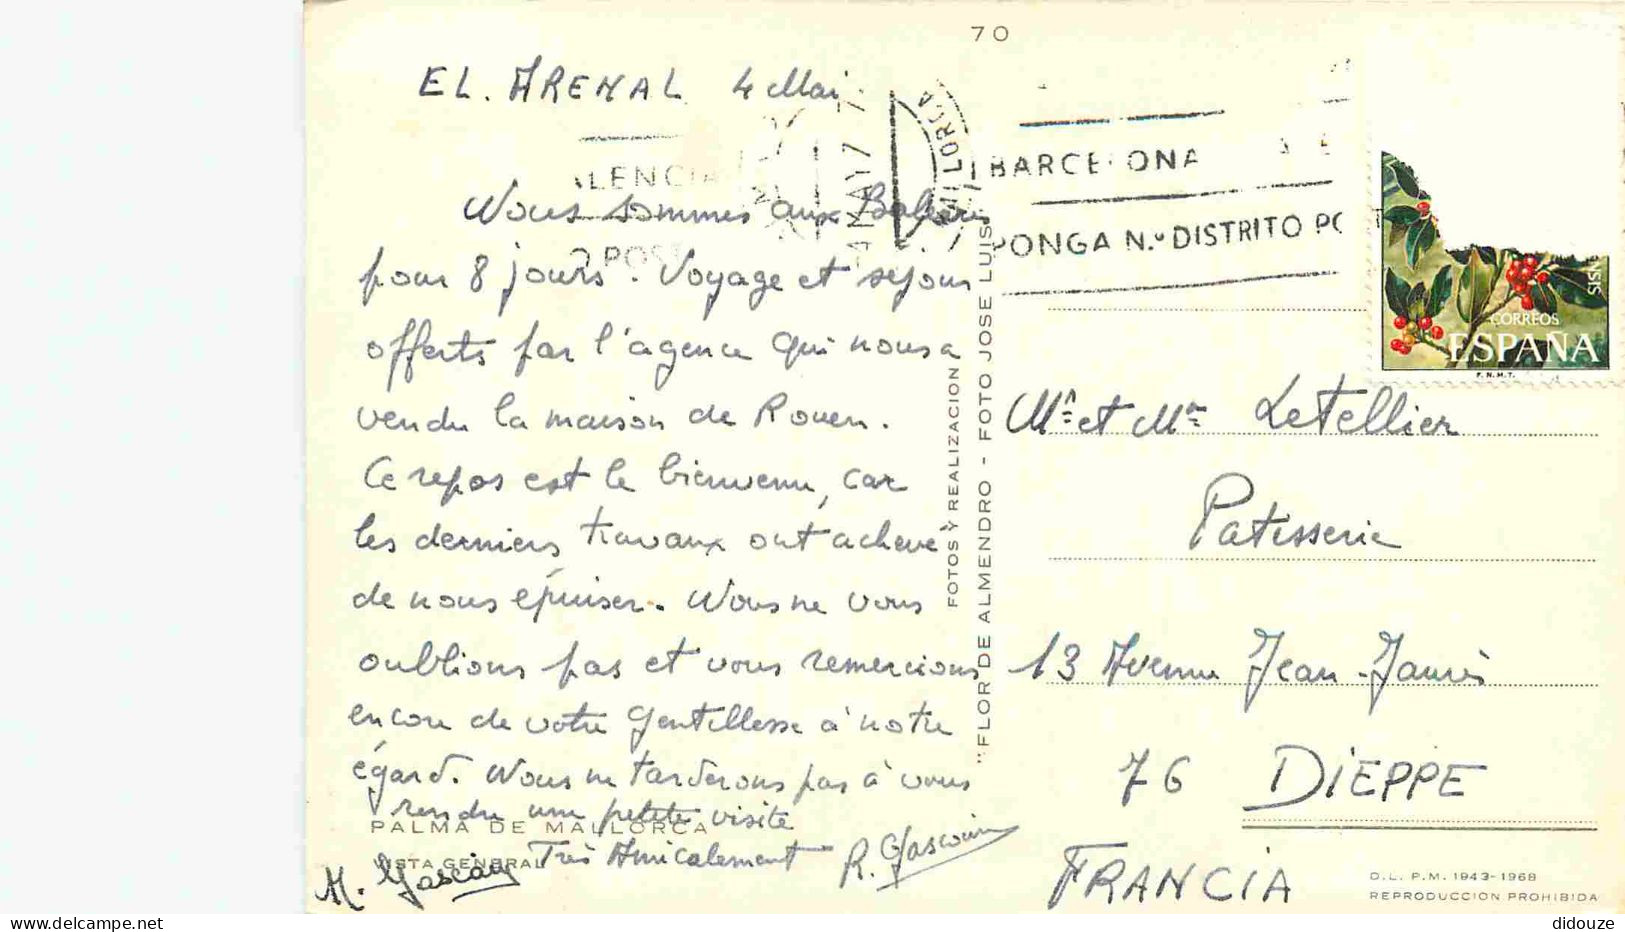 70
EL. ARENAL 4 Mai
Nous sommes aux Baléares
pour 8 jours. Voyage et séjour
offerts par l'agence qui nous a
vendu la maison de Rouen.
Ce repos est le bienvenu, car
les derniers travaux ont achevé
de nous épuiser. Nous ne vous
oublions pas et vous remercions
encore de votre gentillesse à notre
égard. Nous ne tarderons pas à vous
rendre une petite visite
Très Amicalement
R. Gascoin
M. Gascoin
PALMA DE MALLORCA
VISTA GENERAL
FOTOS Y REALIZACION
"FLOR DE ALMENDRO - FOTO JOSE LUIS
ALENCIA
O POST
4 MAY 7
LLORCA
BARCELONA
PONGA N.º DISTRITO PO
SISI
CORREOS
ESPAÑA
F.N.M.T.
Mr et Me Letellier
Patisserie
13 Avenue Jean-Jaurès
76 DiEPPE
FRANCIA
D.L. P.M. 1943-1968
REPRODUCCION PROHIBIDA
didouze